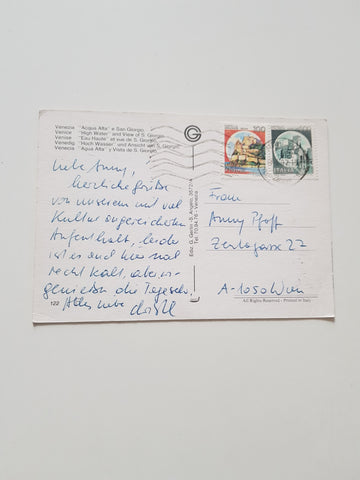 Venezia "Acqua Alta" e San Giorgio.
Venice "High Water" and View of S. Giorgio.
Venise "Eau Haute" et vue de S. Giorgio.
Venedig "Hoch Wasser" und Ansicht von S. Giorgio.
Venecia "Agua Alta" y Vista de S. Giorgio.
Liebe Anny,
herzliche Grüße
von unserem mit viel
Kultur angereicherten
Aufenthalt, leider
ist es auch hier mal
recht kalt, aber wir
genießen die Tage sehr,
Alles Liebe
122
Ediz. G. Gerlin - S. Angelo, 3572/A
Tel. - Venezia
G
100
ITALIA
Frau
Anny Pfoff
Zentagasse 22
A-1050 Wien
All Rights Reserved - Printed in Italy